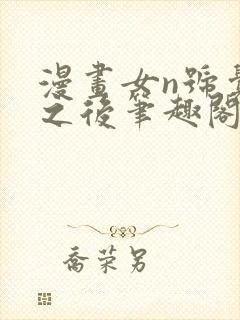 漫畫女n號覺
之後筆趣閣
喬荣另